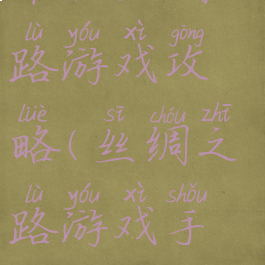 lù yóu xì gōng
路游戏攻
lüè sī chóu zhī
略(丝绸之
lù yóu xì shǒu
路游戏手